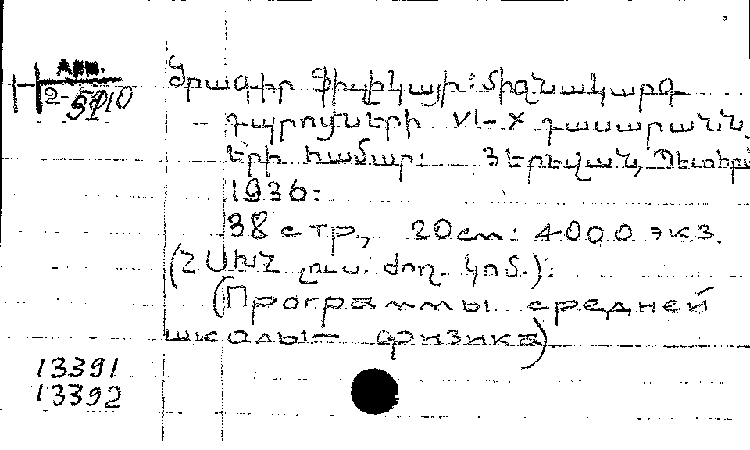 Арм.
2-5910
Ծրագիր Ֆիզիկայի: Միջնակարգ
դպրոցների VI-X դասարանն
երի համար: Յերեվան, Պետհրա
1936:
38 стр, 20см: 4000 экз.
(ՀՍԽՀ լուս. ժող. կոմ.):
(Программы средней
школы— физика)
13391
13392